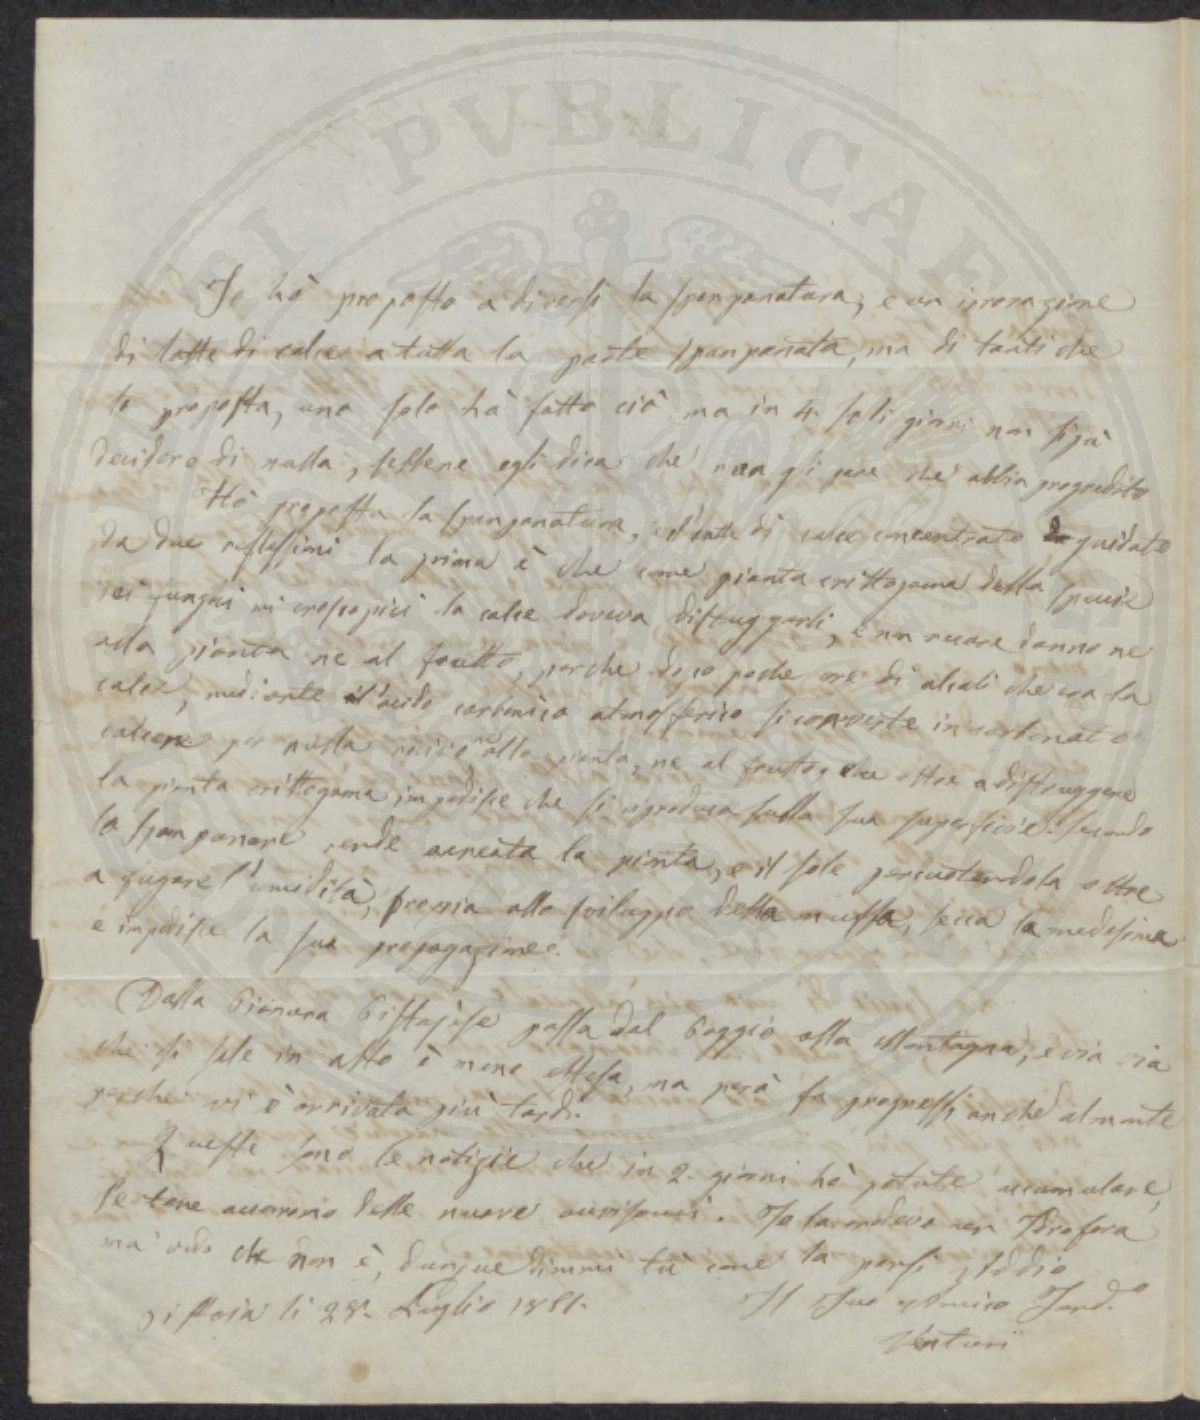 Io hò proposto a diversi la spanpanatura, e un irrorazione
di latte di calce a tutta la parte spanpanata, ma di tanti che
lo proposta, uno solo hà fatto ciò ma in 4. soli giorni non si può
decidere di nulla, sebbene egli dica che non gli pare che abbia progredito
Hò proposta la spanpanatura, e il latte di calce concentrato guidato
da due riflessioni la prima è che come pianta crittogama della specie
dei funghi microscopici la calce doveva distruggerli, e non recare danno ne
alla pianta ne al frutto, perche dopo poche ore di alcali che era la
calce, mediante l'acido carbonico atmosferico si converte in carbonato
calcare per nulla nocivo ne alla pianta, ne al frutto, che oltre a distruggere
la pianta crittogama impedisce che si riproduca sulla sua superficie. secondo
lo spanpanare rende aereata la pianta, e il sole percuotendola oltre
a fugare l'umidità, propria allo sviluppo della muffa, secca la medesima
e impedisce la sua propagazione.
Dalla Pianura Pistojese passa dal Poggio alla Montagna, e via via
che si sale in alto è meno estesa, ma però fa progressi anche al monte
perche vi è arrivata più tardi.
Queste sono le notizie che in 2. giorni hò potute accumulare,
Se tene occorrono delle nuove scrivimi. Io la credevo un
ma vedo che non è, dunque dimmi tù come la pensi Addio
Pistoia li 28. Luglio 1851. Il Tuo Amico Ferd.o
Venturi
PVBLICAE